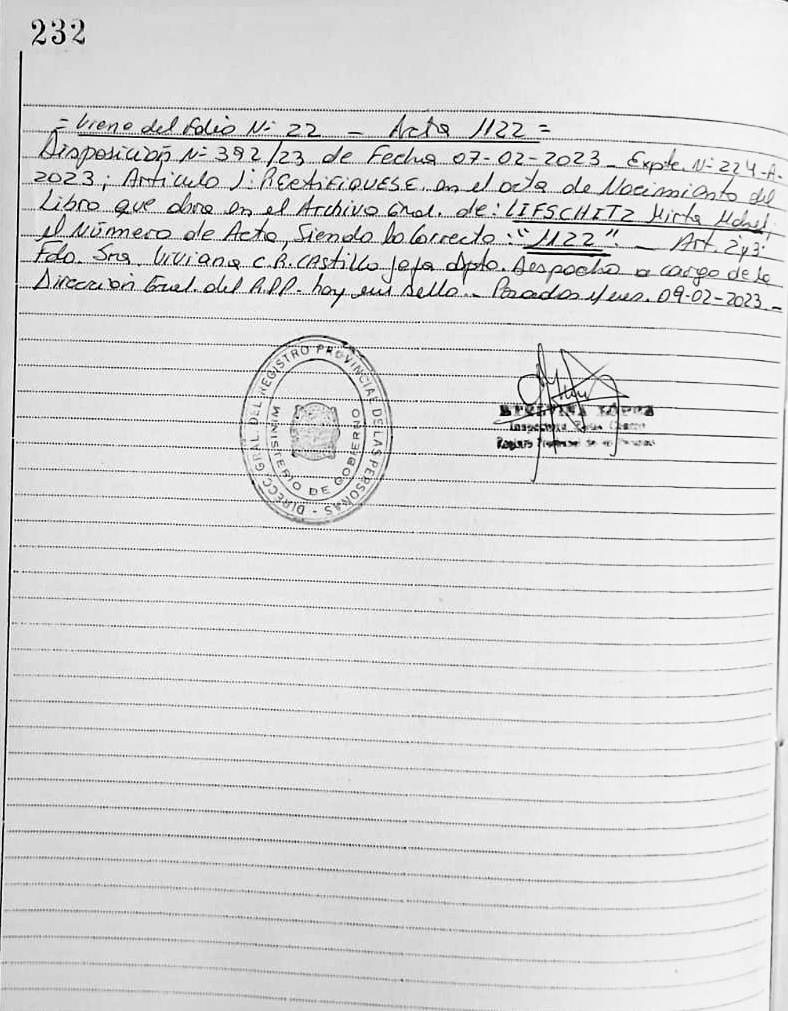 232
= Viene del folio Nº 22 - Acta 1122 =
Disposición Nº 392/23 de Fecha 07-02-2023 - Expte. Nº 224-A-
2023; Artículo 1º: RECTIFIQUESE en el acta de Nacimiento del
Libro que obra en el Archivo Gral. de: LIFSCHITZ Mirta
el Número de Acta, Siendo lo Correcto: "1122". - Art. 2 y 3:
Fdo. Sra. Viviana C.R. CASTILLO jefa dpto. Despacho a cargo de la
Dirección Gral. del R.P.P. hay un sello. - Posadas Mnes. 09-02-2023. -
DIRECC. GRAL. DEL REGISTRO PROVINCIAL DE LAS PERSONAS -
MINISTERIO DE GOBIERNO
Registro Provincial de las Personas